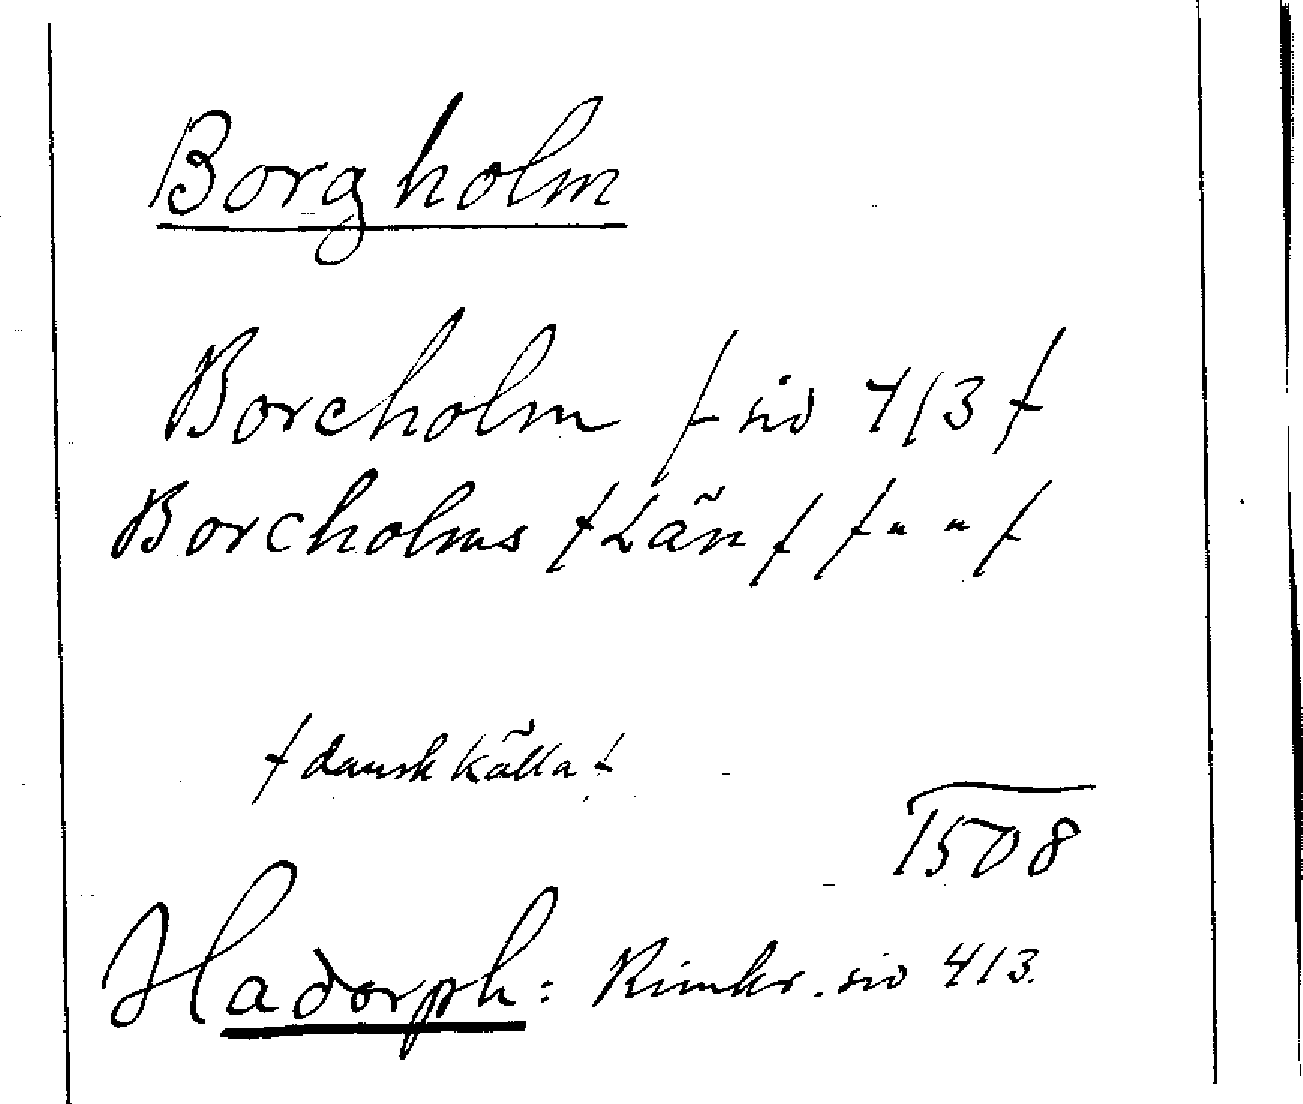 Borgholm
Borcholm / sid 413 /
Borcholms / Län / / " " /
/ dansk källa /
1508
Hadorph: Rimkr. sid 413.